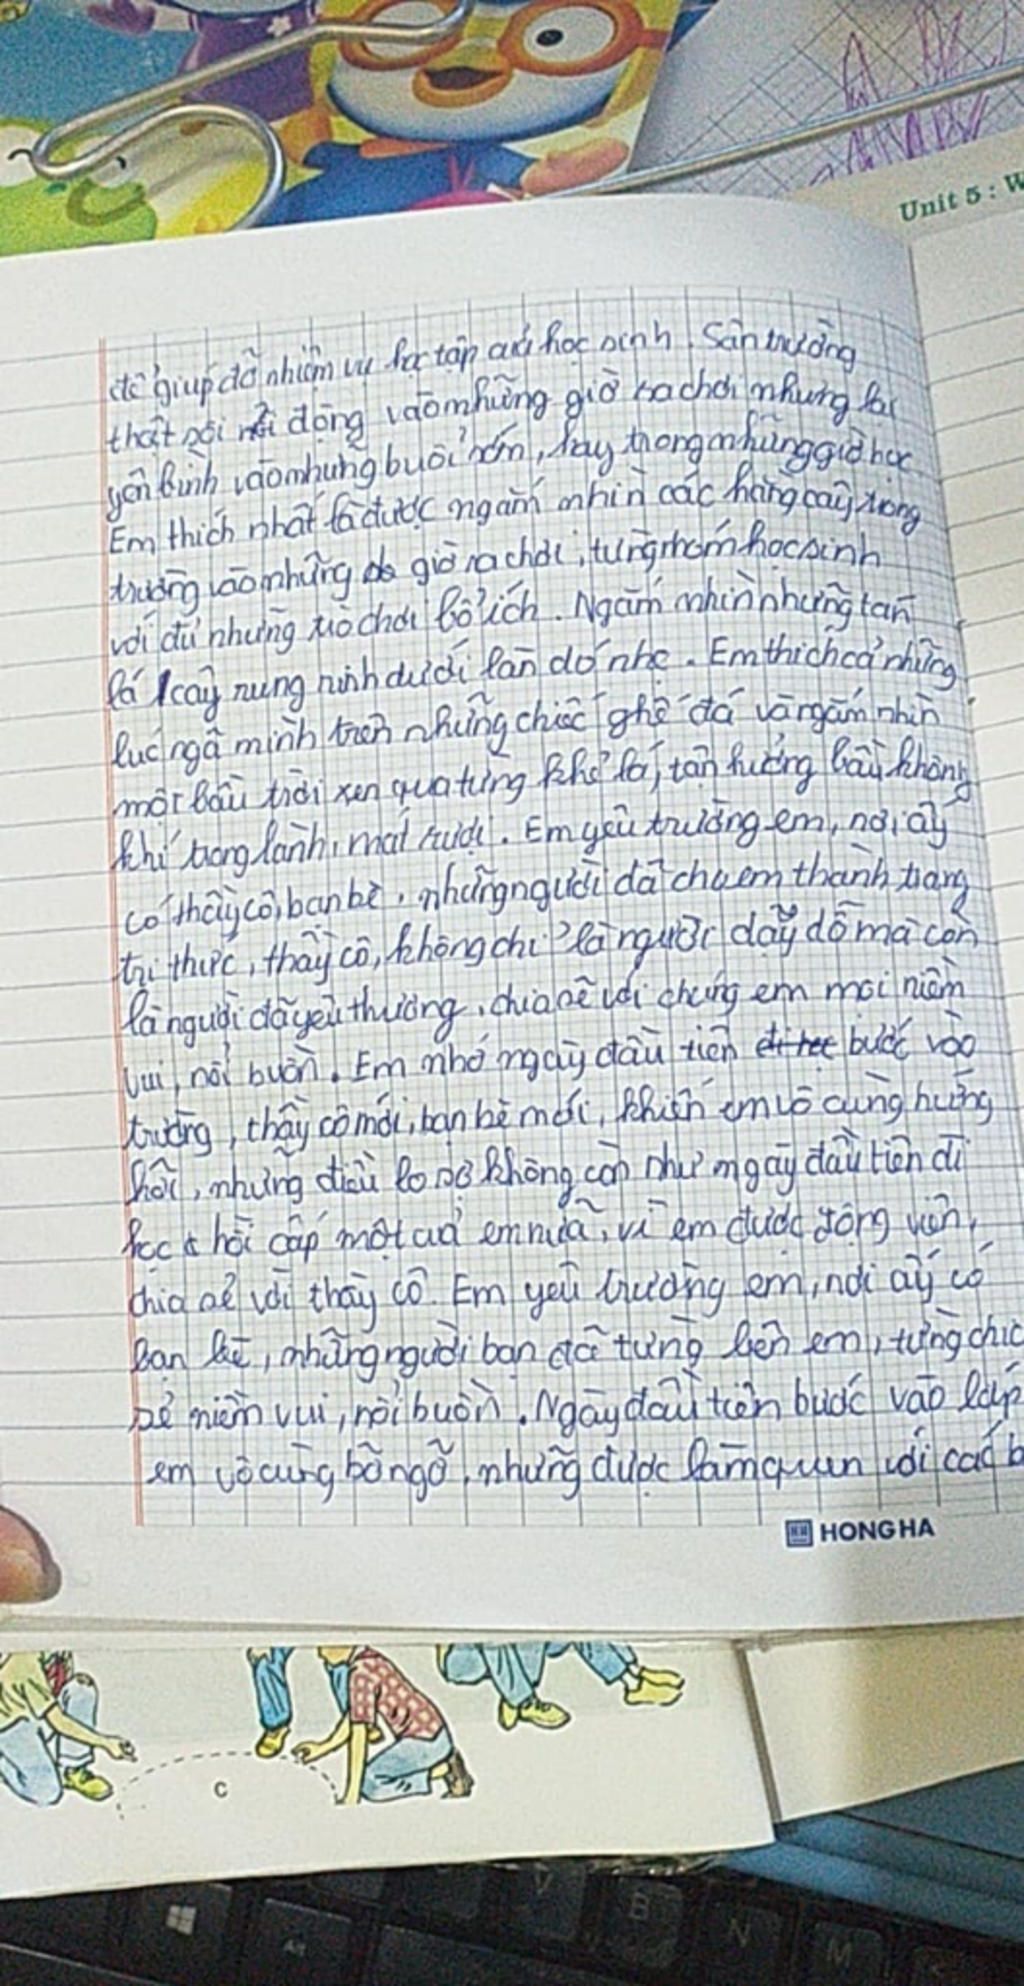 Unit 5 : W
để giúp đỡ nhiệm vụ học tập của học sinh. Sân trường
thật sôi nổi động vào những giờ ra chơi nhưng lại
yên bình vào những buổi hay trong những giờ học
Em thích nhất là được ngắm nhìn các hàng cây trong
trường vào những giờ ra chơi, từng nhóm học sinh
với đủ những trò chơi bổ ích. Ngắm nhìn những tán
lá cây rung rinh dưới làn gió nhẹ. Em thích cả những
lúc ngả mình trên những chiếc ghế đá và ngắm nhìn
một bầu trời xen qua từng khe lá, tận hưởng bầu không
khí trong lành, mát rượi. Em yêu trường em, nơi ấy
có thầy cô, bạn bè, những người đã cho em thành trang
tri thức, thầy cô, không chỉ là người dạy dỗ mà còn
là người đã yêu thương, chia sẻ với chúng em mọi niềm
vui, nỗi buồn. Em nhớ ngày đầu tiên bước vào
trường, thầy cô mới, bạn bè mới, khiến em vô cùng hứng
hồi, những điều lo sợ không còn như ngày đầu tiên đi
học hồi cấp một của em nữa, vì em được động viên,
chia sẻ với thầy cô. Em yêu trường em, nơi ấy có
bạn bè, những người bạn đã từng bên em, từng chia
sẻ niềm vui, nỗi buồn. Ngày đầu tiên bước vào lớp
em vô cùng bỡ ngỡ, nhưng được làm quen với các b
HONG HA
C
Alt
V
B
N
M